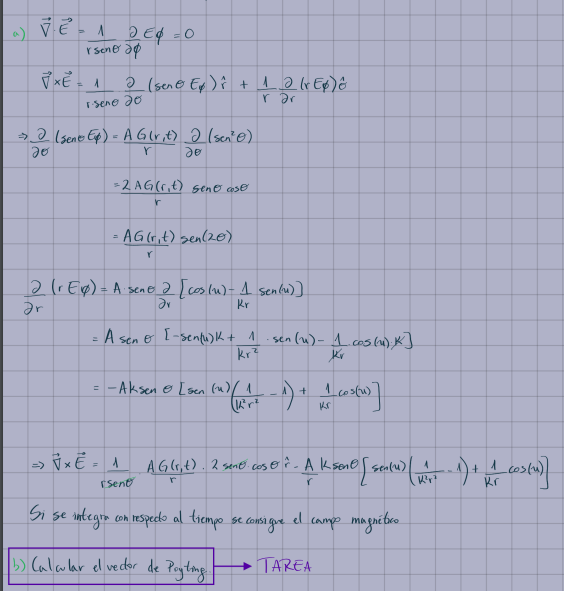 a) ∇⃗·E⃗ = 1/(r senθ) ∂/∂φ Eφ = 0
∇⃗×E⃗ = 1/(r senθ) ∂/∂θ (senθ Eφ) r̂ + 1/r ∂/∂r (r Eφ) θ̂
⇒ ∂/∂θ (senθ Eφ) = A G(r,t)/r ∂/∂θ (sen²θ)
= 2 A G(r,t)/r senθ cosθ
= A G(r,t)/r sen(2θ)
∂/∂r (r Eφ) = A · senθ ∂/∂r [cos(u) - 1/(kr) sen(u)]
= A senθ [-sen(u)k + 1/(kr²) · sen(u) - 1/(kr) cos(u) k]
= -Aksenθ [sen(u)(1/(k²r²) - 1) + 1/(kr) cos(u)]
⇒ ∇⃗×E⃗ = 1/(r senθ) · A G(r,t)/r · 2 senθ cosθ r̂ - A/r k senθ [sen(u)(1/(k²r²) - 1) + 1/(kr) cos(u)]
Si se integra con respecto al tiempo se consigue el campo magnético
b) Calcular el vector de Poyting → TAREA